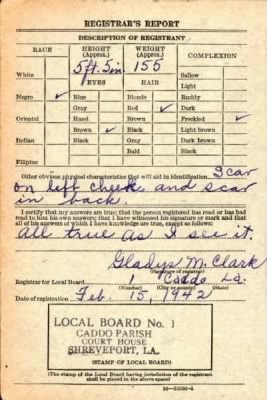 REGISTRAR'S REPORT
DESCRIPTION OF REGISTRANT
RACE HEIGHT (Approx.) WEIGHT (Approx.) COMPLEXION
5 ft. 5 in. 155
White EYES HAIR Sallow
Light
Negro ✓ Blue Blonde Ruddy
Gray Red ✓ Dark
Oriental Hazel Brown Freckled ✓
Brown ✓ Black Light brown
Indian Black Gray Dark brown
Bald Black
Filipino
Other obvious physical characteristics that will aid in identification. Scar
on left cheek and scar
in back.
I certify that my answers are true; that the person registered has read or has had
read to him his own answers; that I have witnessed his signature or mark and that
all of his answers of which I have knowledge are true, except as follows:
All true as I see it.
Gladys M. Clark
(Signature of registrar)
Registrar for Local Board Caddo La.
(Number) (City or county) (State)
Date of registration Feb. 15, 1942
LOCAL BOARD No. 1
CADDO PARISH
COURT HOUSE
SHREVEPORT, LA.
(STAMP OF LOCAL BOARD)
(The stamp of the Local Board having jurisdiction of the registrant
shall be placed in the above space)